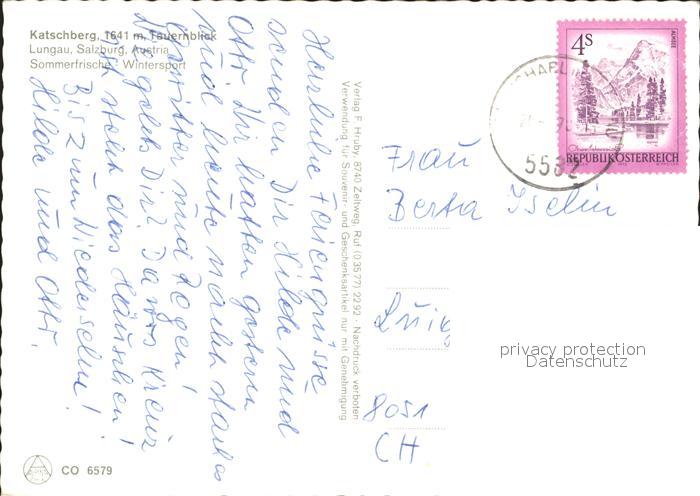 Katschberg, 1641 m, Tauernblick
Lungau, Salzburg, Austria
Sommerfrische - Wintersport
Herzliche Feriengrüsse
senden Dir Hilde und
Otto. Wir hatten gestern
und heute starkes
Gewitter und Regen!
Wie gehts Dir?
steht das Häuschen!
Bis zum Wiedersehn!
Hilde und Otto.
Verlag F. Hruby, 8740 Zeltweg, Ruf (0 35 77) 2292 - Nachdruck verboten
Verwendung für Souvenir- und Geschenksartikel nur mit Genehmigung
4S
ALMSEE
REPUBLIK ÖSTERREICH
5582
Frau
Berta Iselin
8051
CH
privacy protection
Datenschutz
CO 6579